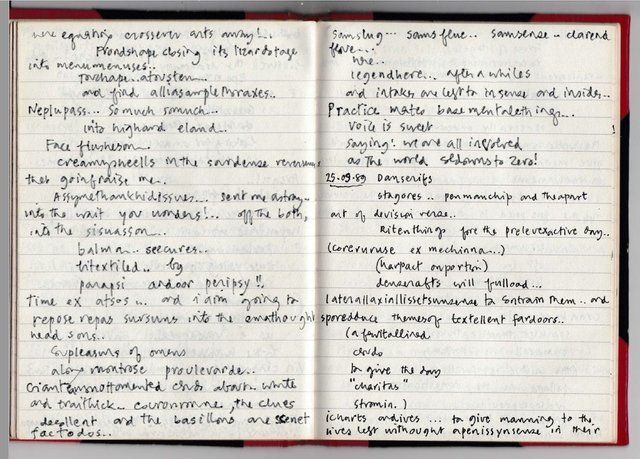 were equating crossever arts away!..
Frondshape closing its lizardstage
into menumenuses..
and find alliasamplephraxes..
Neplupass... So much somuch...
into highard eland...
Face flusheson
creamysheells in the surdense
they goinfraise me..
sent me astray..
into the wait you wonders!.. off the both,
into the sisuasson..
balma.. seecures..
bitextiled.. by
parapsi andoor peripsy!!
time ex atsos... and i aim going to
repose repas sursums into the emathought
head sons..
Supleasms of omens
along montrose proulevarde..
about white
and traithick.. , the clues
and the basillons are
factodos..
Samslug... sams flue.. samsense.. clarend
here...
legendhere... after a whiles
and intakes are left to insense and insides..
Practice mates basementalethings...
Voice is sweet
saying! we are all involved
as the world seldoms to zero!
25.09.89 Danserifs
stagores.. penmanchip and theapart
art of devision verae..
Ritenthings for the prelevexactive day..
(corevuruse ex mechinna...)
(harpact onportion)
denserafts will fulload...
to entrain them.. and
themes of textellent fardoors..
(a fewitallined
crudo
to give the day
"charitas"
stramin.)
icharts ardives ... to give manning to the
lives lest withought in their